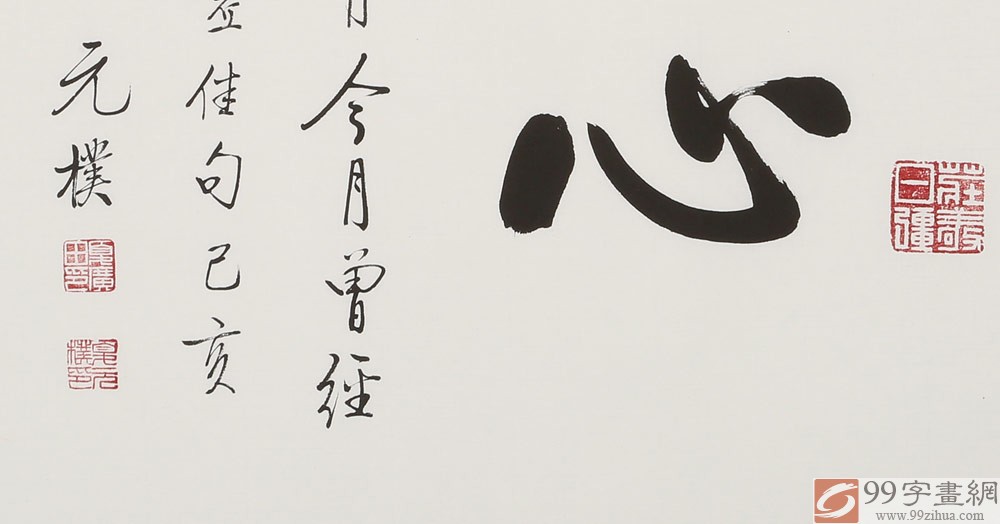 心
月
今月曾經
佳句己亥
元樸
99字畫網
www.99zihua.com